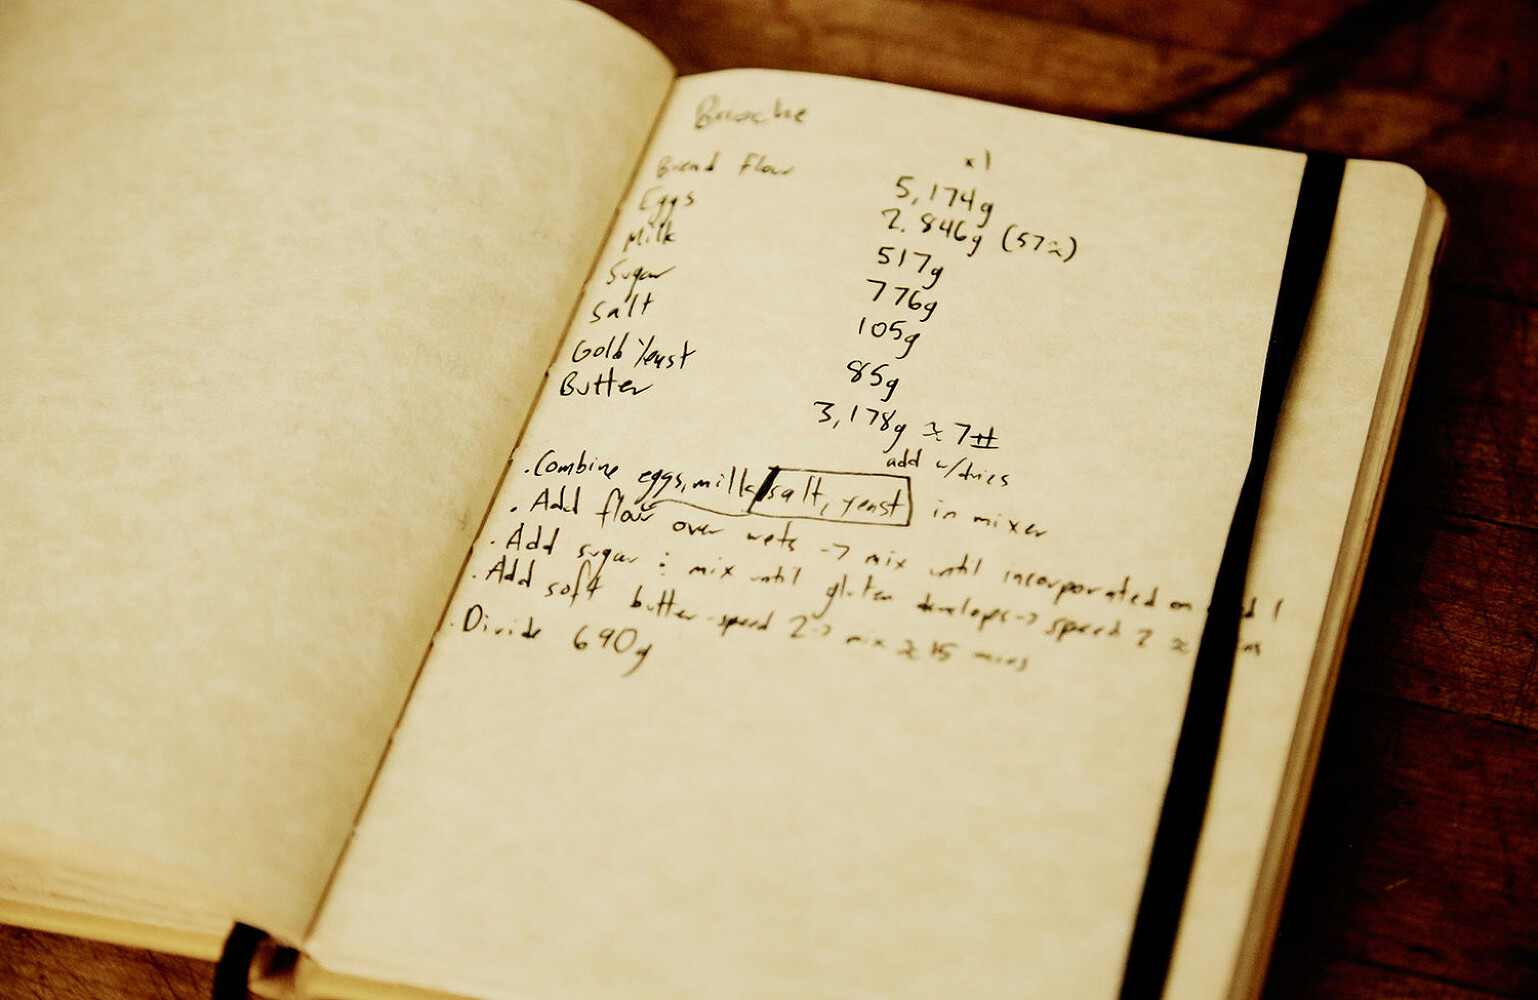 Brioche
x1
Bread flour 5,174g
Eggs 2,846g (57≈)
Milk 517g
Sugar 776g
Salt 105g
Gold Yeast 85g
Butter 3,178g ≈ 7#
add w/dries
· Combine eggs, milk salt, yeast in mixer
· Add flour over wets -> mix until incorporated on 1
· Add sugar : mix until gluten develops -> speed 2 ≈
· Add soft butter - speed 2 -> mix ≈ 15 mins
· Divide 690g